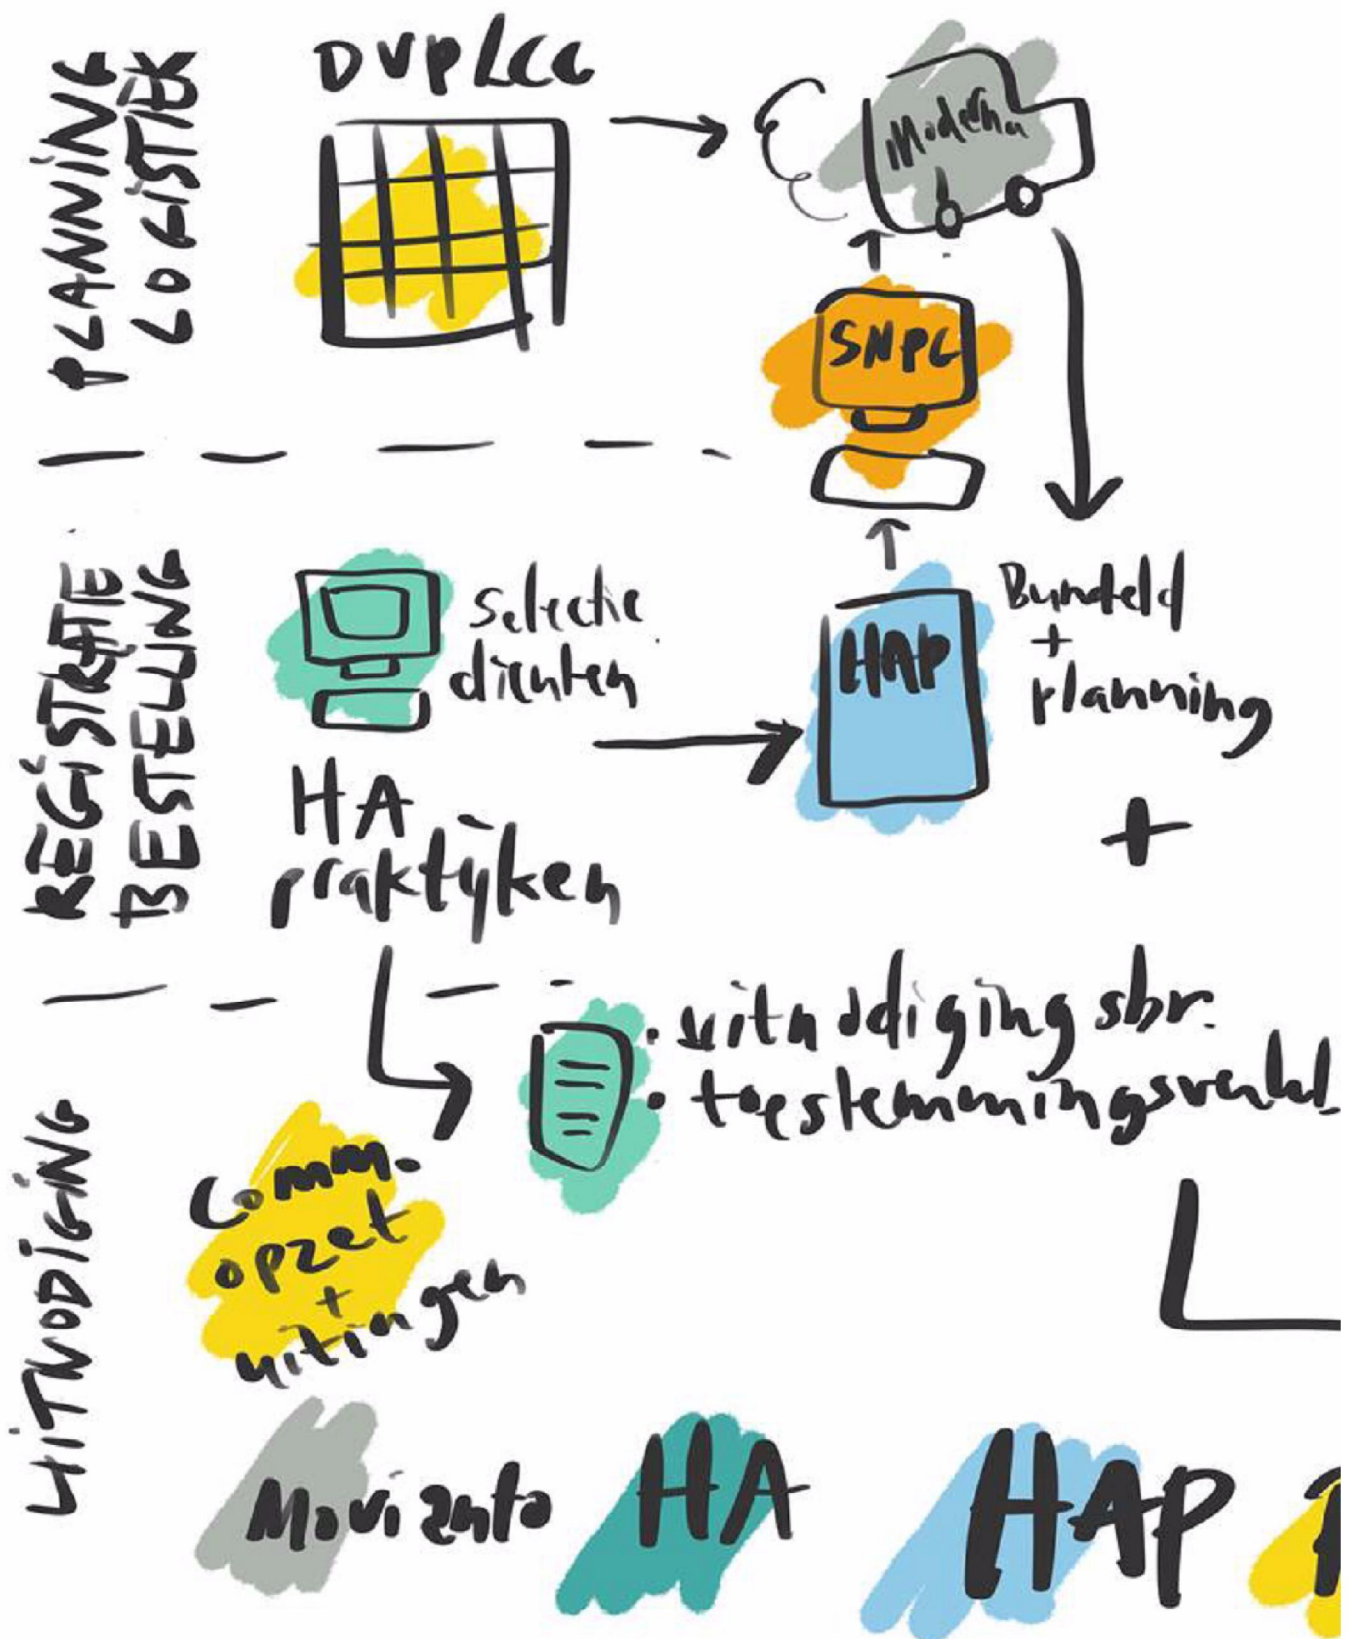 PLANNING
LOGISTIEK
DVP LCC
Moderna
SNPG
REGISTRATIE
BESTELLING
selectie
cliënten
HA
praktijken
HAP
Bundeld
+
planning
+
UITNODIGING
• uitnodigingsbr.
• toestemmingsverkl.
Comm.
opzet
+
uitingen
Movianto
HA
HAP